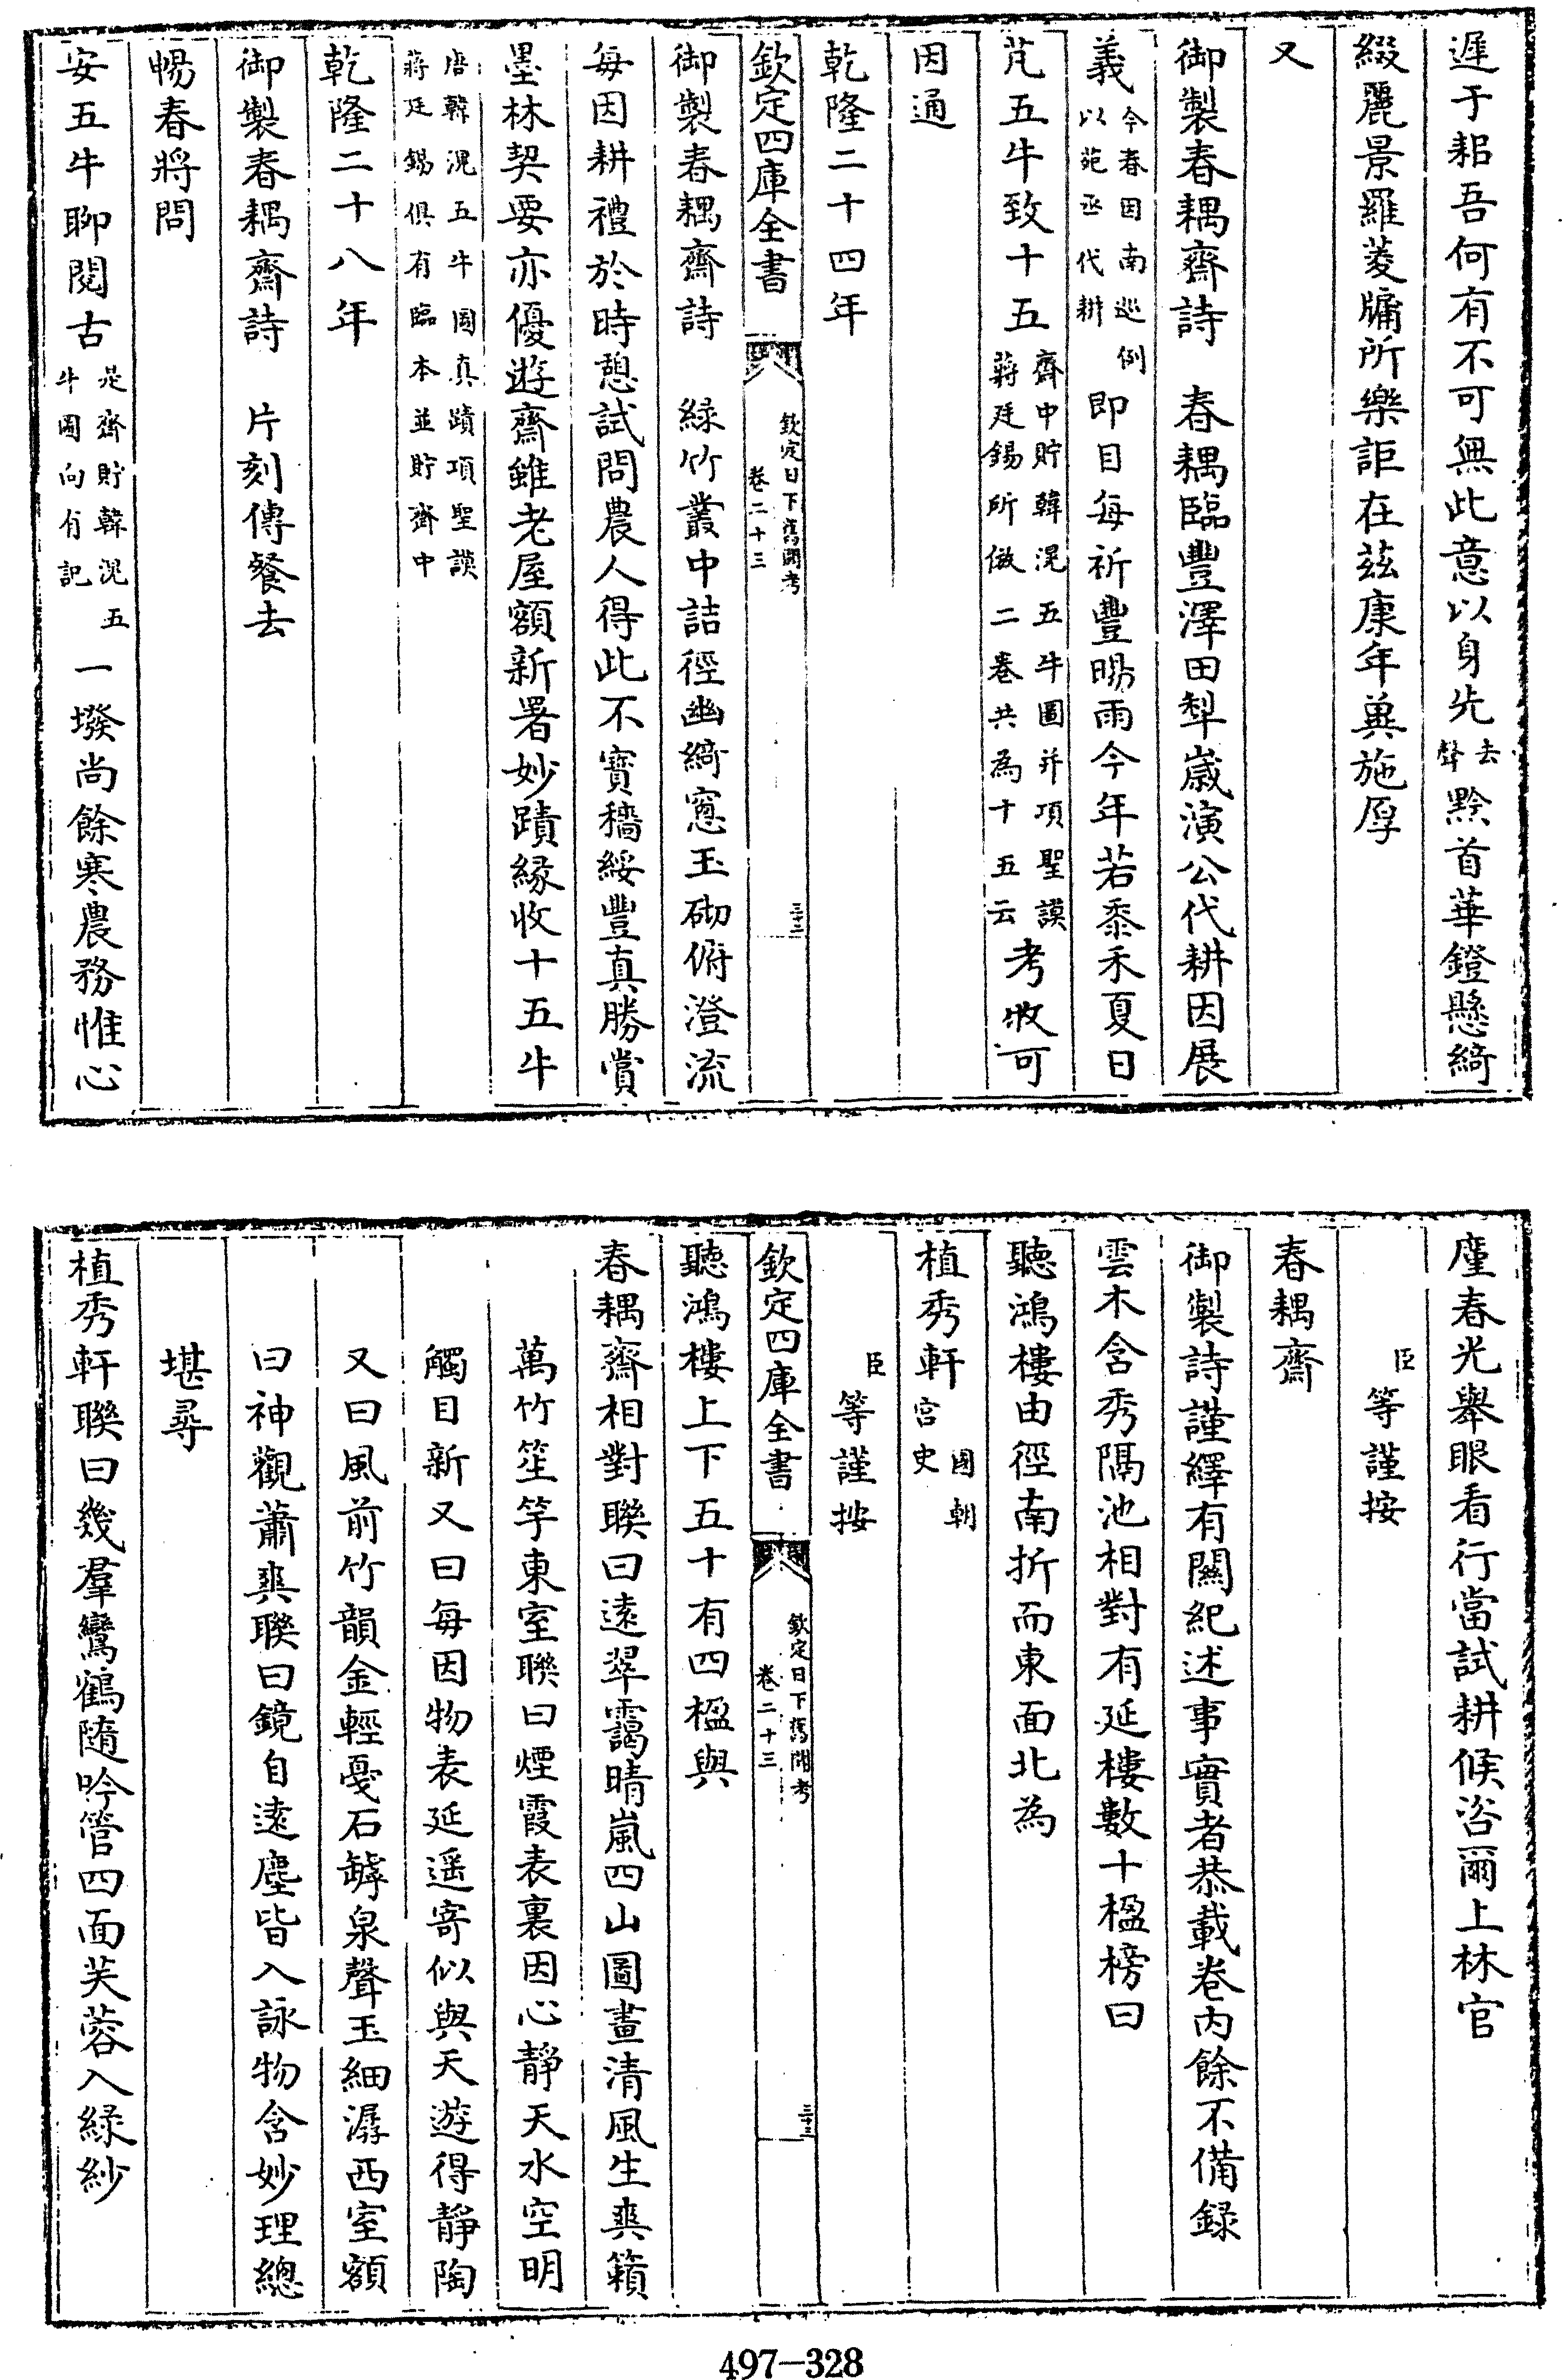 遲于耜吾何有不可無此意以身先去聲黔首華鐙懸綺
綴麗景羅菱牖所樂詎在兹康年冀施厚
又
御製春耦齋詩　春耦臨豐澤田犂嵗演公代耕因展
義今春因南巡例以苑丞代耕即目每祈豐暘雨今年若黍禾夏日
芃五牛致十五齋中貯韓滉五牛圖并項聖謨蔣廷錫所倣二卷共為十五云考牧可
因通
乾隆二十四年
欽定四庫全書　欽定日下舊聞考卷二十三　三十二
御製春耦齋詩　緑竹叢中詰徑幽綺窻玉砌俯澄流
每因耕禮於時憩試問農人得此不寳穡綏豐真勝賞
墨林契要亦優遊齋雖老屋額新署妙蹟緣收十五牛
唐韓滉五牛圖真蹟項聖謨蔣廷錫俱有臨本並貯齋中
乾隆二十八年
御製春耦齋詩　片刻傳餐去
暢春將問
安五牛聊閱古是齋貯韓滉五牛圖向有記一墢尚餘寒農務惟心
廑春光舉眼看行當試耕候咨爾上林官
臣等謹按
春耦齋
御製詩謹繹有關紀述事實者恭載卷内餘不備録
雲木含秀隔池相對有延樓數十楹榜曰
聽鴻樓由徑南折而東面北為
植秀軒國朝宫史
臣等謹按
欽定四庫全書　欽定日下舊聞考卷二十三　三十三
聽鴻樓上下五十有四楹與
春耦齋相對聯曰遠翠靄晴嵐四山圖畫清風生爽籟
萬竹笙竽東室聯曰煙霞表裏因心靜天水空明
觸目新又曰每因物表延遥寄似與天遊得靜陶
又曰風前竹韻金輕戞石罅泉聲玉細潺西室額
曰神觀蕭爽聯曰鏡自遠塵皆入詠物含妙理總
堪尋
植秀軒聯曰幾羣鸞鶴隨吟管四面芙蓉入緑紗
497-328